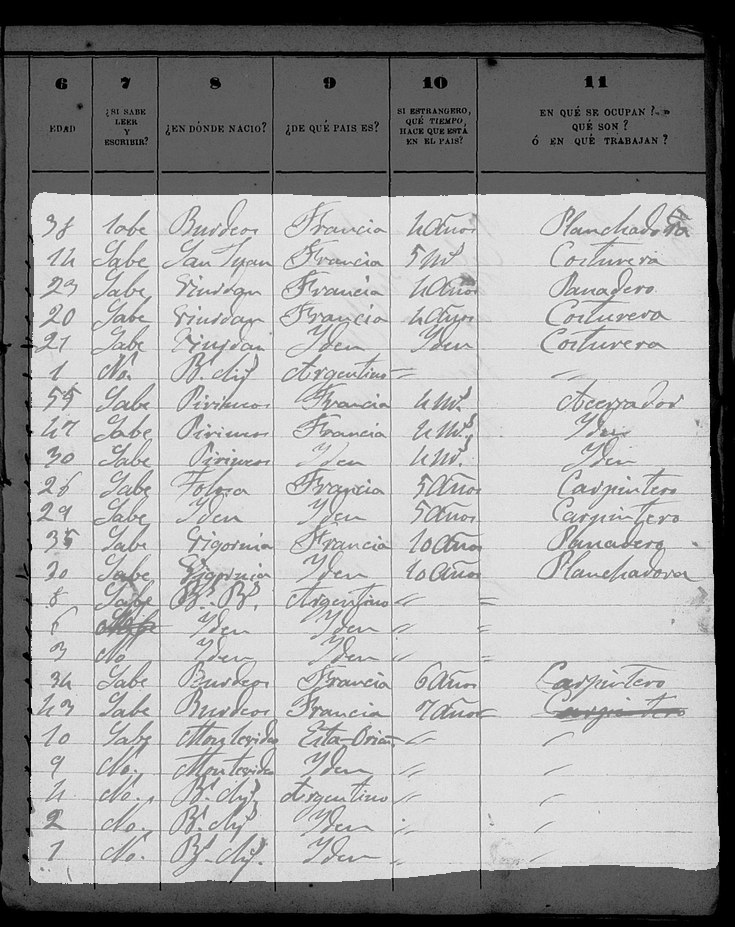 6 7 8 9 10 11
EDAD ¿SI SABE LEER Y ESCRIBIR? ¿EN DÓNDE NACIO? ¿DE QUÉ PAIS ES? SI ESTRANGERO, QUÉ TIEMPO, HACE QUE ESTÁ EN EL PAIS? EN QUÉ SE OCUPAN? QUÉ SON? Ó EN QUÉ TRABAJAN?
38 Sabe Burdeos Francia 4 Años Planchadora
14 Sabe San Francia 5 Costurera
23 Sabe Francia 4 Años Panadero
20 Sabe Francia 4 Años Costurera
21 Sabe Yden Yden Costurera
1 No. Argentino "
55 Sabe Pirineos Francia Acerrador
47 Sabe Pirineos Francia Yden
30 Sabe Pirineos Yden Yden
26 Sabe Tolosa Francia 5 Años Carpintero
29 Sabe Yden Yden 5 Años Carpintero
35 Sabe Vigornia Francia 10 Años Panadero
30 Sabe Vigornia Yden 10 Años Planchadora
8 Sabe Bs. As. Argentino " =
6 Yden Yden " =
3 No Yden Yden " =
34 Sabe Burdeos Francia 6 Años Carpintero
43 Sabe Burdeos Francia 7 Años Carpintero
10 Sabe Montevideo Esta. Orien. " "
9 No. Montevideo Yden " "
4 No. Bs. Ays. Argentino " "
2 No. Bs. Ays. Yden " "
1 No. Bs. Ays. Yden " "